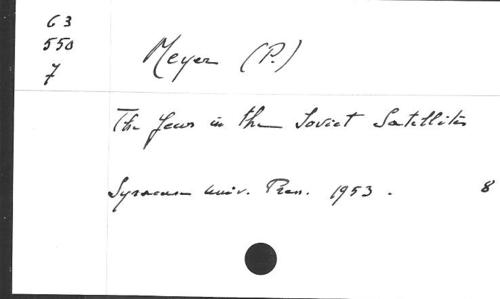 63
550
7
Meyer (P.)
The Jews in the Soviet Satellites
Syracuse Univ. Press. 1953. 8